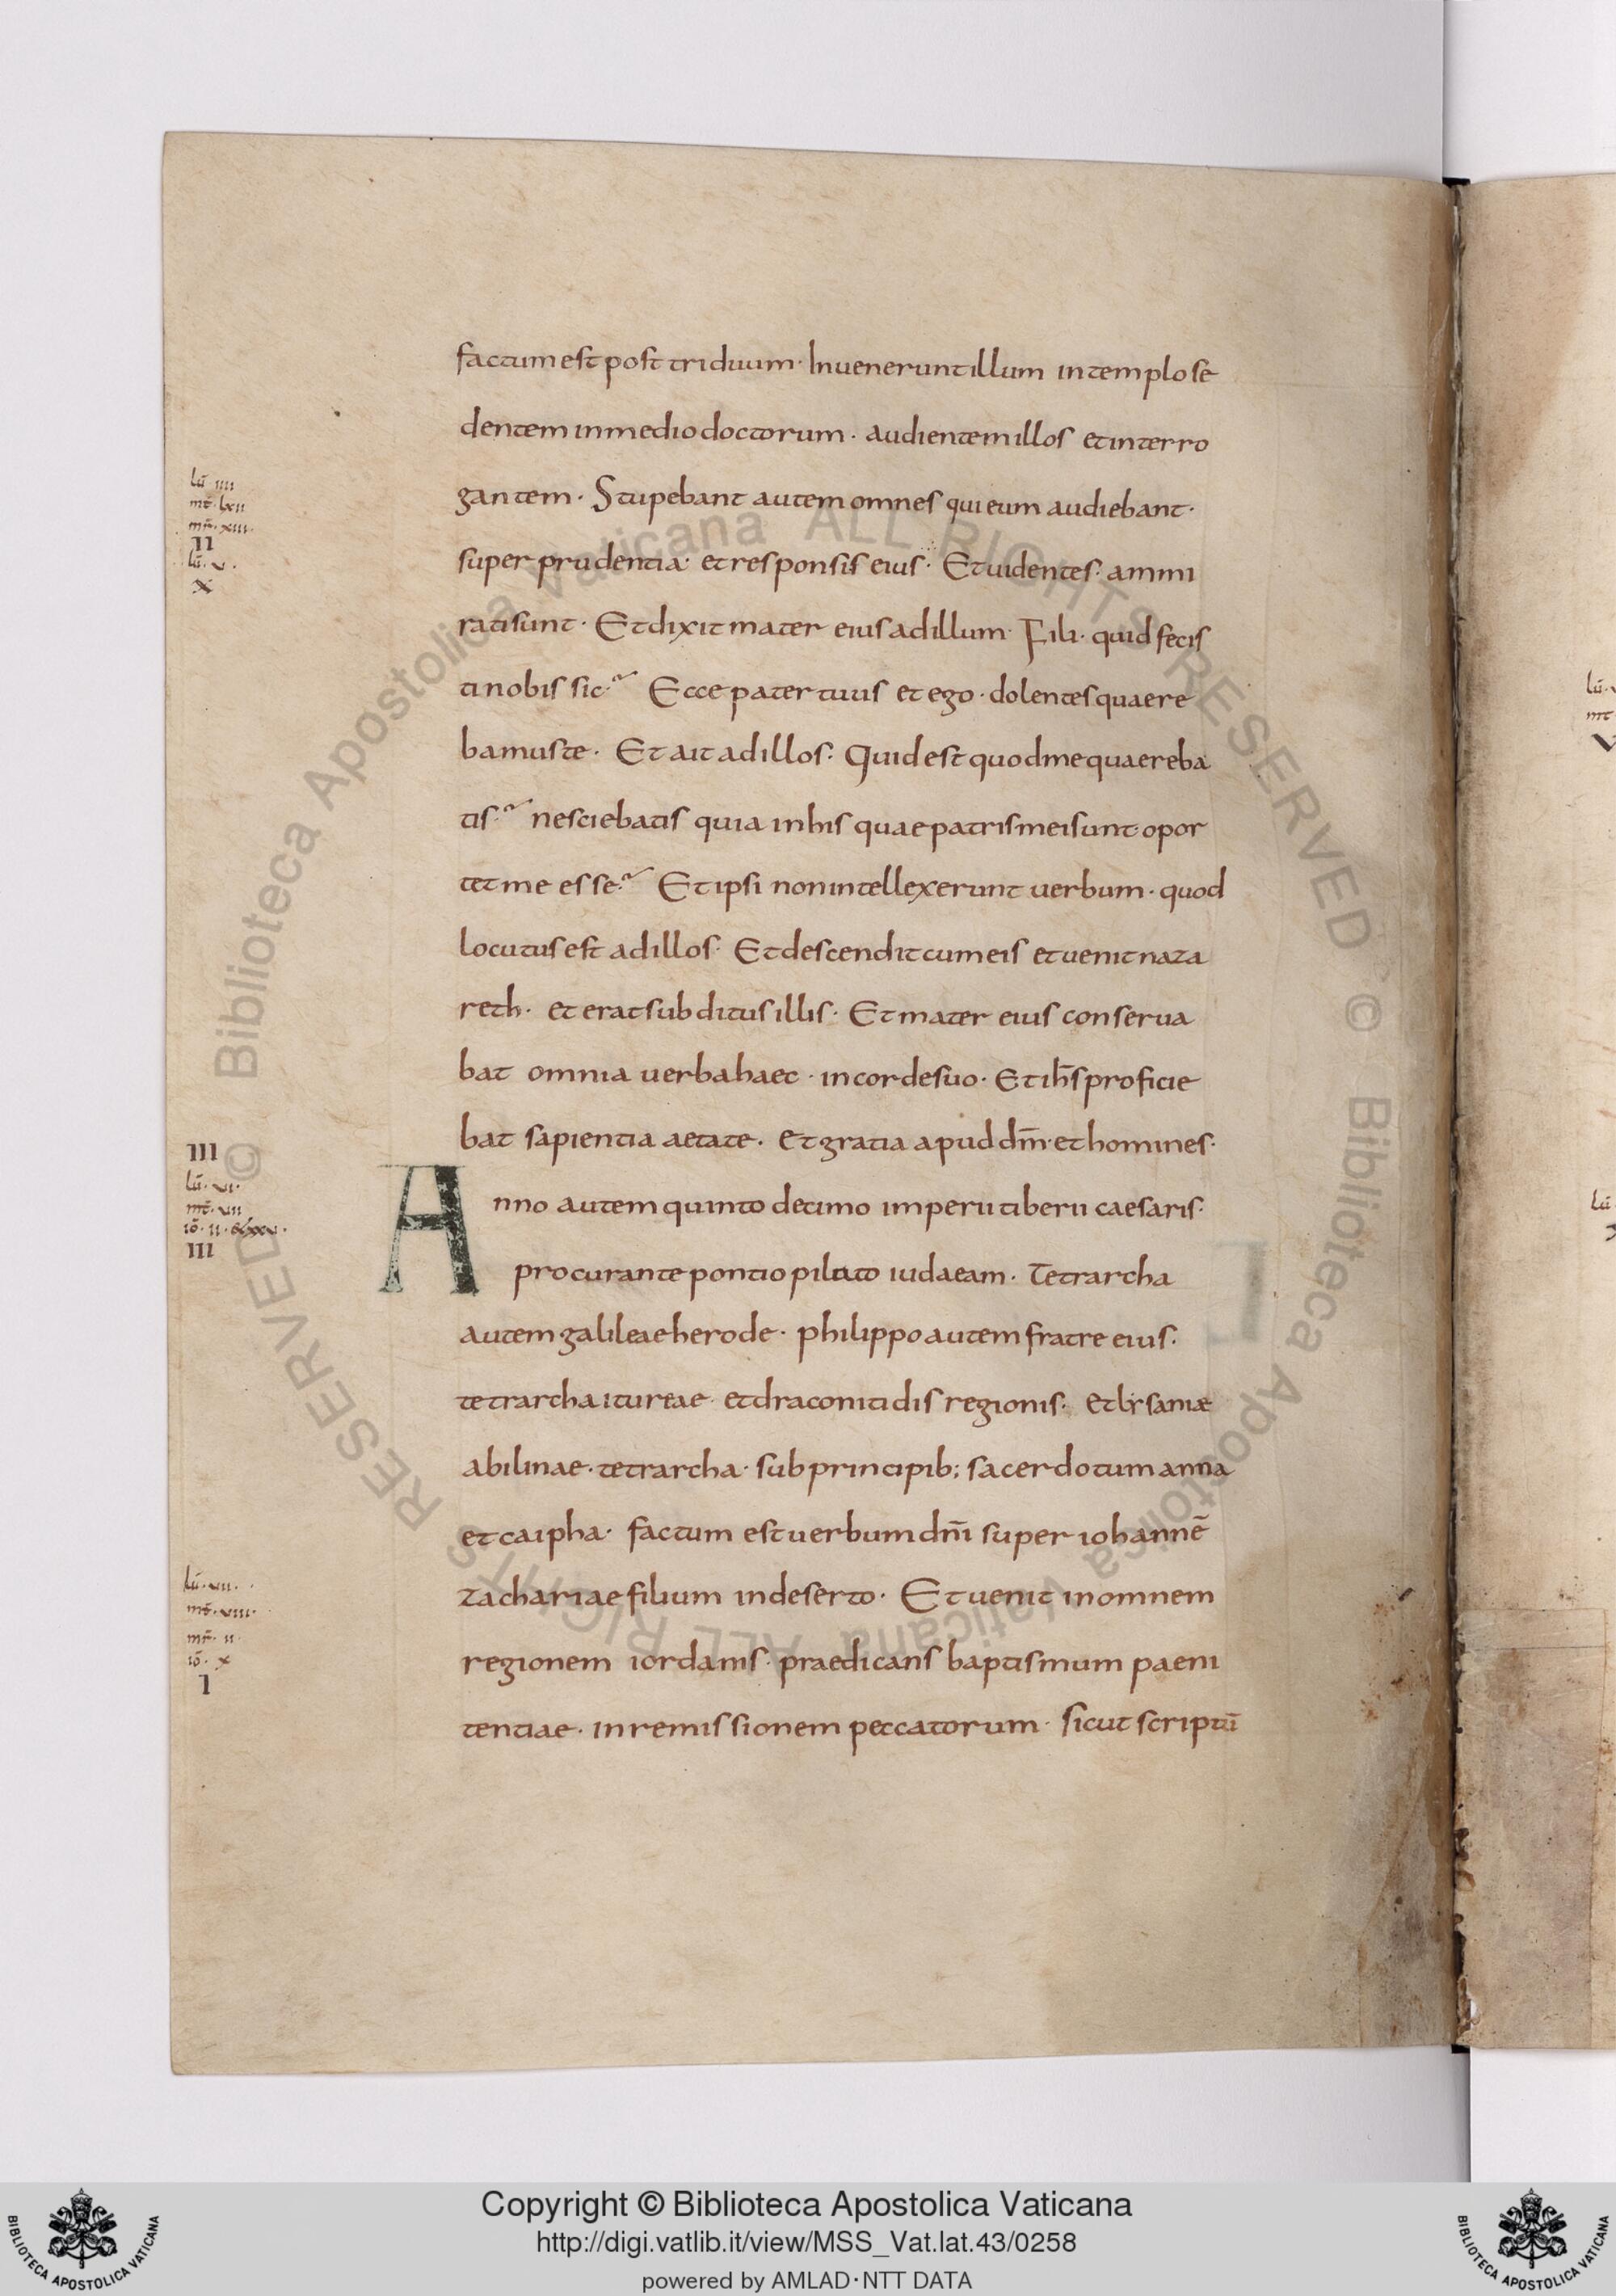 factum est post triduum· Invenerunt illum in templo se
dentem in medio doctorum· audientem illos et interro
gantem· Stupebant autem omnes qui eum audiebant·
super prudentia· et responsis eius· Et uidentes· ammi
rati sunt· Et dixit mater eius ad illum· Fili· quid fecis
ti nobis sic? Ecce pater tuus et ego· dolentes quaere
bamus te· Et ait ad illos· Quid est quod me quaereba
tis? nesciebatis quia in his quae patris mei sunt opor
tet me esse? Et ipsi non intellexerunt uerbum· quod
locutus est ad illos· Et descendit cum eis et uenit naza
reth· et erat subditus illis· Et mater eius conserua
bat omnia uerba haec· in corde suo· Et ih̅s proficie
bat sapientia aetate· et gratia apud dm̅· et homines·
Anno autem quinto decimo imperii tiberii caesaris·
procurante pontio pilato iudaeam· Tetrarcha
autem galileae herode· philippo autem fratre eius·
tetrarcha itureae· et draconitidis regionis· et lysaniæ
abilinae· tetrarcha· sub principib; sacerdotum anna
et caipha· factum est uerbum dni̅ super iohannē
zachariae filium in deserto· Et uenit in omnem
regionem iordanis· praedicans baptismum paeni
tentiae· in remissionem peccatorum· sicut scriptū
lū· iiii
mt̅· lxii
mr̅· xiii·
II
lū· v·
X
III
lū· vi·
mt̅· vii
III
lū· vii·
mt̅· viii·
mr̅· ii·
iō· x
I
© Biblioteca Apostolica Vaticana ALL RIGHTS RESERVED © Biblioteca Apostolica Vaticana ALL RIGHTS RESERVED
Copyright © Biblioteca Apostolica Vaticana
http://digi.vatlib.it/view/MSS_Vat.lat.43/0258
powered by AMLAD·NTT DATA
BIBLIOTECA APOSTOLICA VATICANA
BIBLIOTECA APOSTOLICA VATICANA